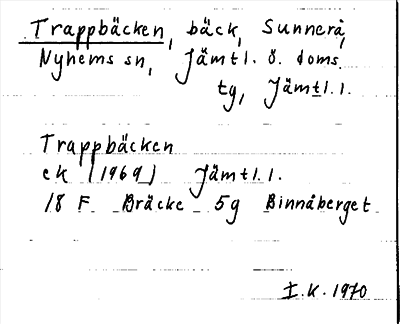 Trappbäcken, bäck, Sunnerå,
Nyhems sn, Jämtl. ö. doms.
tg, Jämtl. l.
Trappbäcken
ek (1969) Jämtl. l.
18 F Bräcke 5g Binnåberget
I.K. 1970